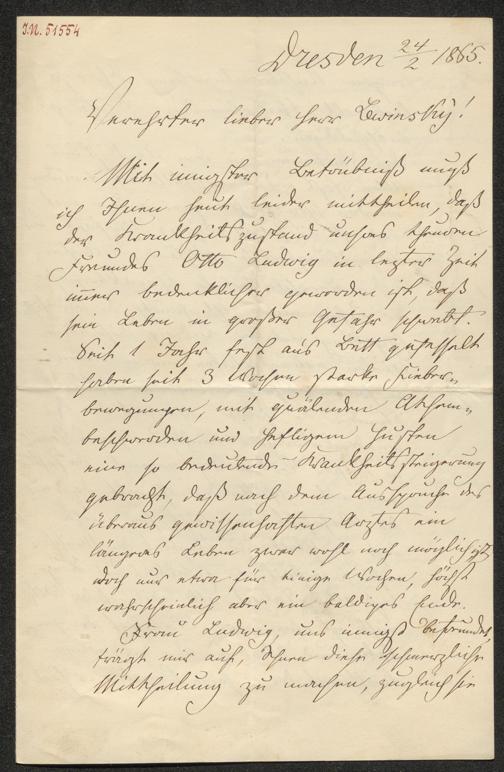 J.N. 51554
Dresden 24/2 1865.
Verehrter lieber Herr Lewinsky!
Mit innigster Betrübniß muß
ich Ihnen heut leider mittheilen, daß
der Krankheitszustand unsres theuren
Freundes Otto Ludwig in letzter Zeit
immer bedenklicher geworden ist, daß
sein Leben in großer Gefahr schwebt.
Seit 1 Jahr fest ans Bett gefesselt
haben seit 3 Wochen starke Fieber-
bewegungen, mit quälenden Athem-
beschwerden und heftigem Husten
eine so bedeutende Krankheitssteigerung
gebracht, daß nach dem Ausspruche des
überaus gewissenhaften Arztes ein
längeres Leben zwar wohl noch möglich ist,
doch nur etwa für einige Wochen, höchst
wahrscheinlich aber ein baldiges Ende.
Frau Ludwig, uns innigst befreundet,
trägt mir auf, Ihnen diese schmerzliche
Mittheilung zu machen, zugleich sie